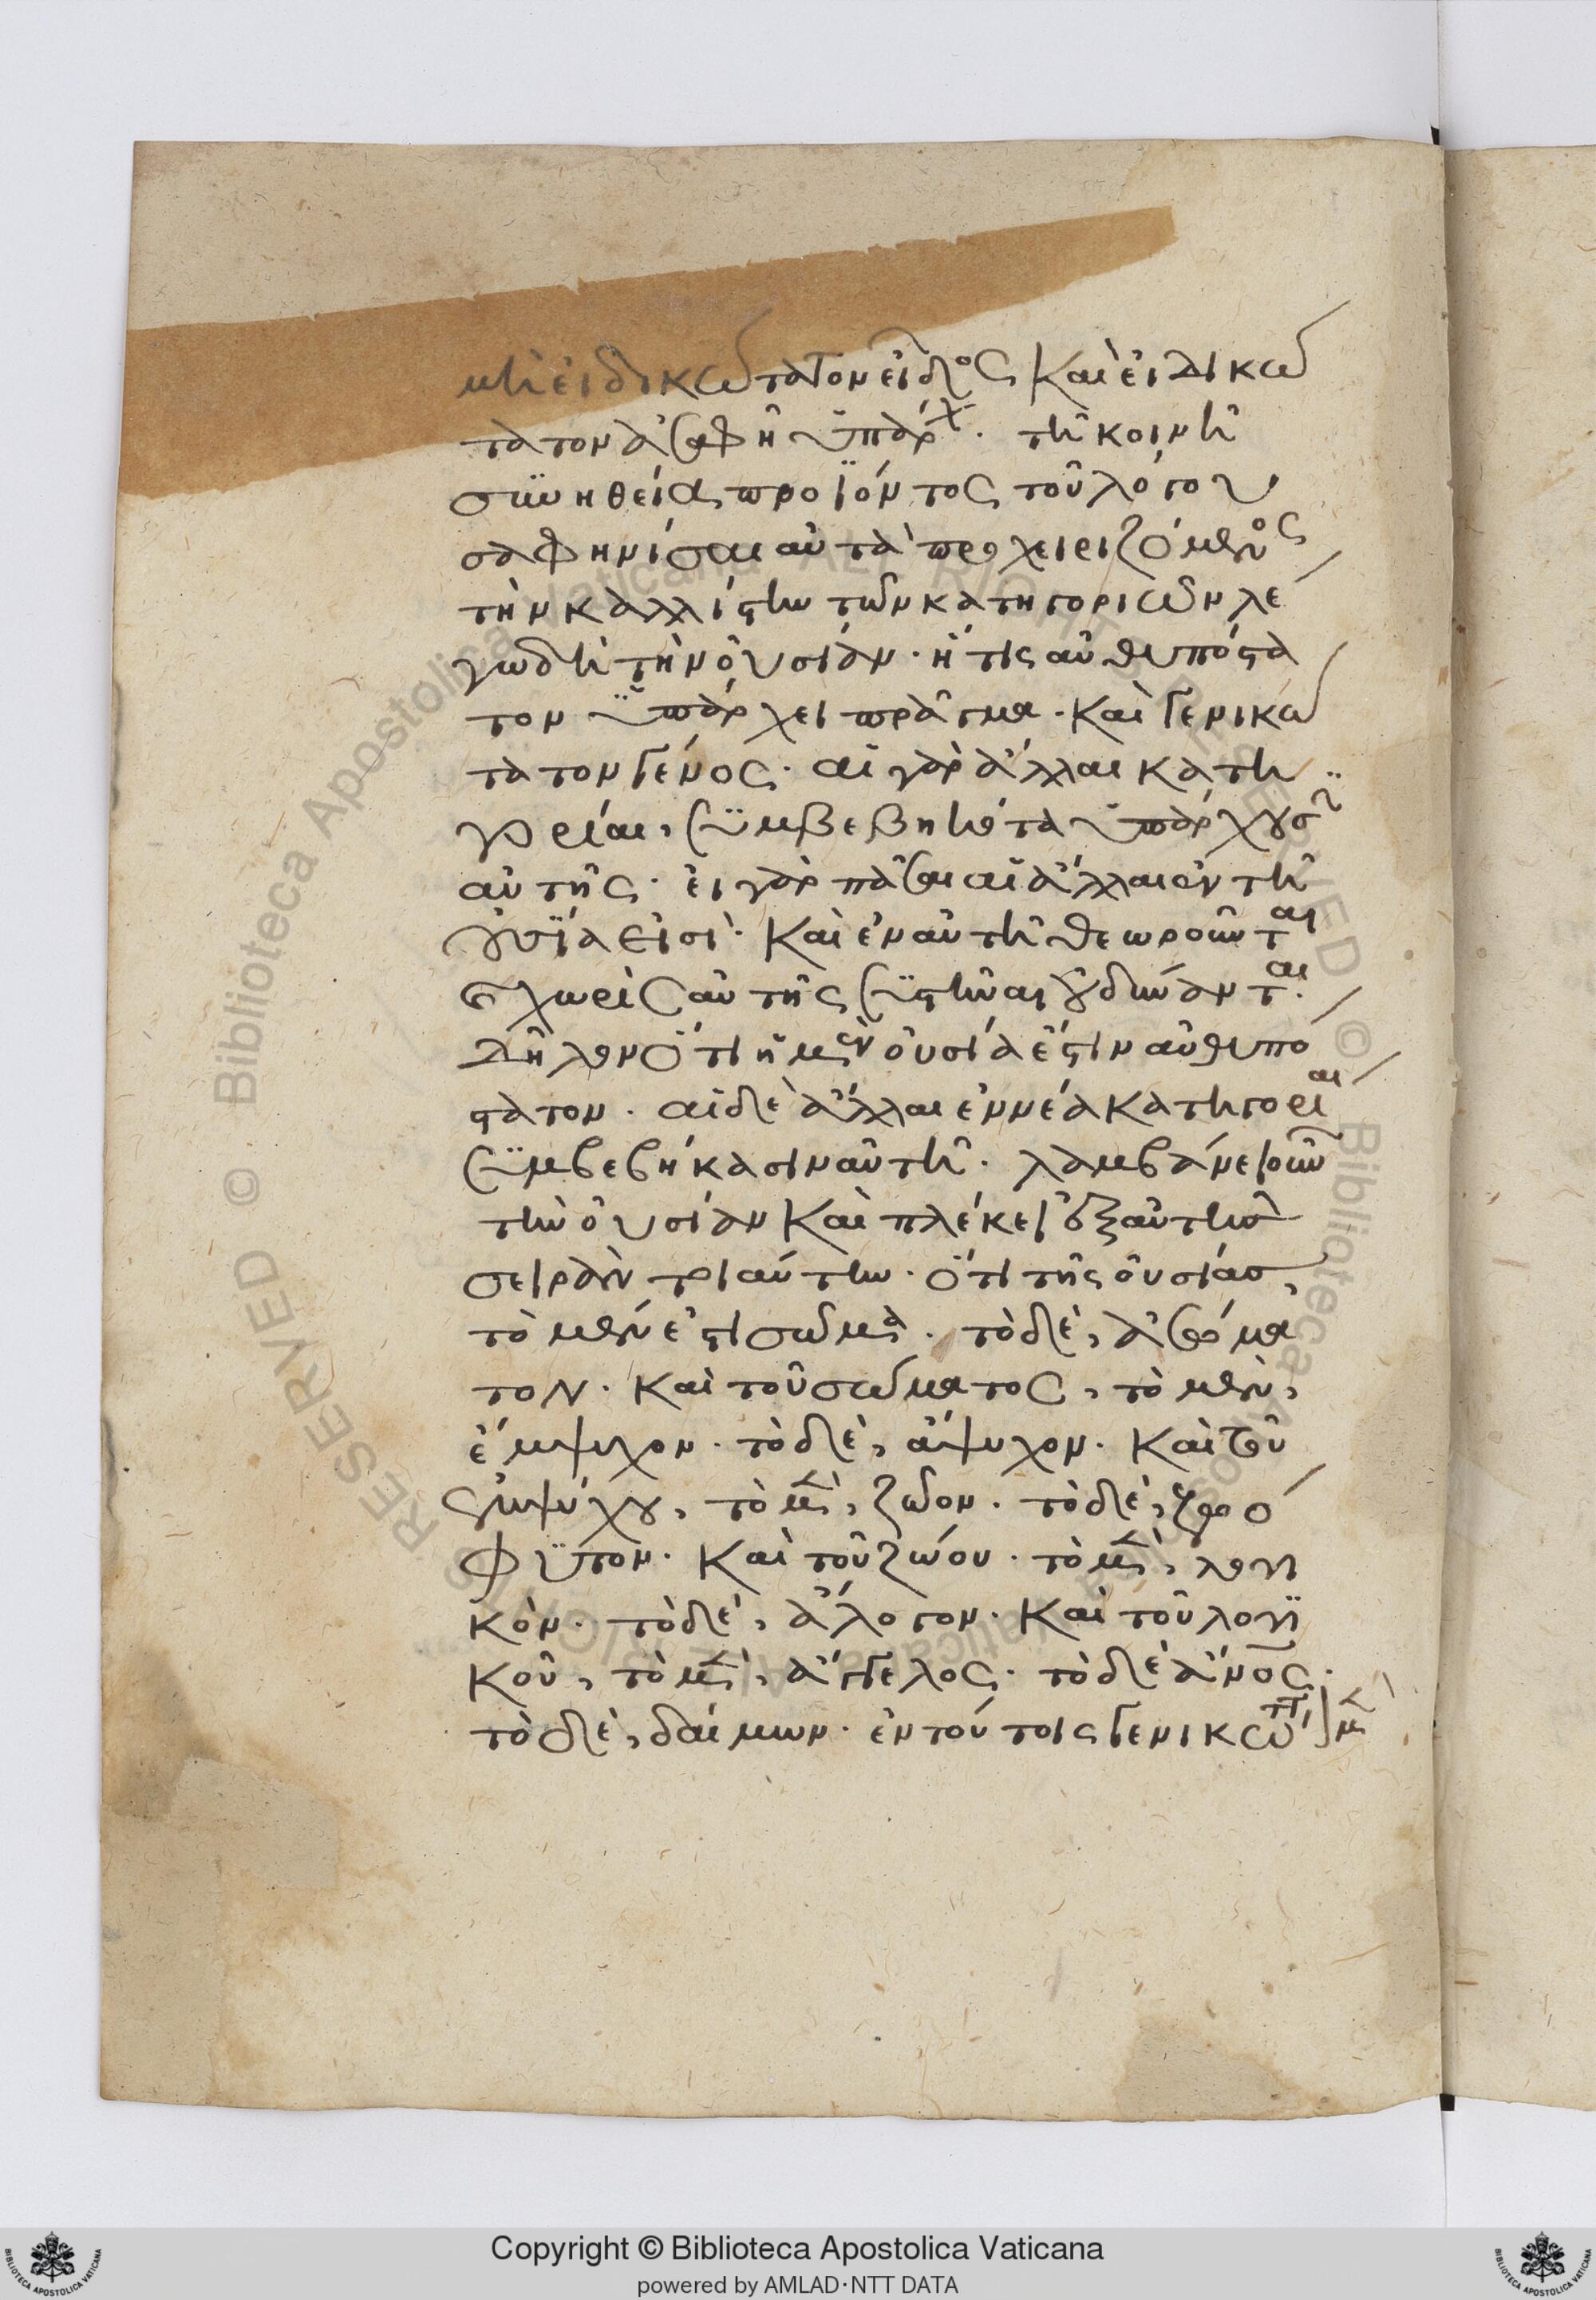 μὴ εἰδικώτατον εἶδος, καὶ εἰδικω
τατον ἀσαφῆ ὑπάρχ. τῆ κοινῆ
συνηθεία προϊόντος τοῦ λόγου
σαφηνίσαι αὐτὰ προχειριζόμενος
τὴν καλλίστην τῶν κατηγοριῶν λέ
γω δὴ τὴν οὐσίαν. ἥτις αὐθυπόστα
τον ὑπάρχει πρᾶγμα. καὶ γενικώ
τατον γένος. αἱ γὰρ ἄλλαι κατη
γορίαι, συμβεβηκότα ὑπάρχουσιν
αὐτῆς. εἰ γὰρ πᾶσαι αἱ ἄλλαι ἐν τῆ
οὐσία εἰσὶ. καὶ ἐν αὐτῆ θεωροῦνται
χωρὶς αὐτῆς συστῆναι οὐ δύνανται.
δῆλον ὅτι ἡ μὲν οὐσία ἐστὶν αὐθυπό
στατον. αἱ δὲ ἄλλαι ἐννέα κατηγορίαι
συμβεβήκασιν αὐτῆ. λαμβάνει οὖν
τὴν οὐσίαν καὶ πλέκει ἐξ αὐτῆς
σειρὰν τοιαύτην. ὅτι τῆς οὐσίας,
τὸ μὲν ἐστι σῶμα. τὸ δὲ, ἀσώμα
τον. καὶ τοῦ σώματος, τὸ μὲν,
ἔμψυχον. τὸ δὲ, ἄψυχον. καὶ τοῦ
ἐμψύχου, τὸ μὲν, ζῶον. τὸ δὲ, ζωό
φυτον. καὶ τοῦ ζώου. τὸ μὲν, λογι
κὸν. τὸ δὲ, ἄλογον. καὶ τοῦ λογι
κοῦ, τὸ μὲν, ἄγγελος. τὸ δὲ ἄνος.
τὸ δὲ, δαίμων. ἐν τούτοις γενικώτ μὲν
Copyright © Biblioteca Apostolica Vaticana
powered by AMLAD·NTT DATA